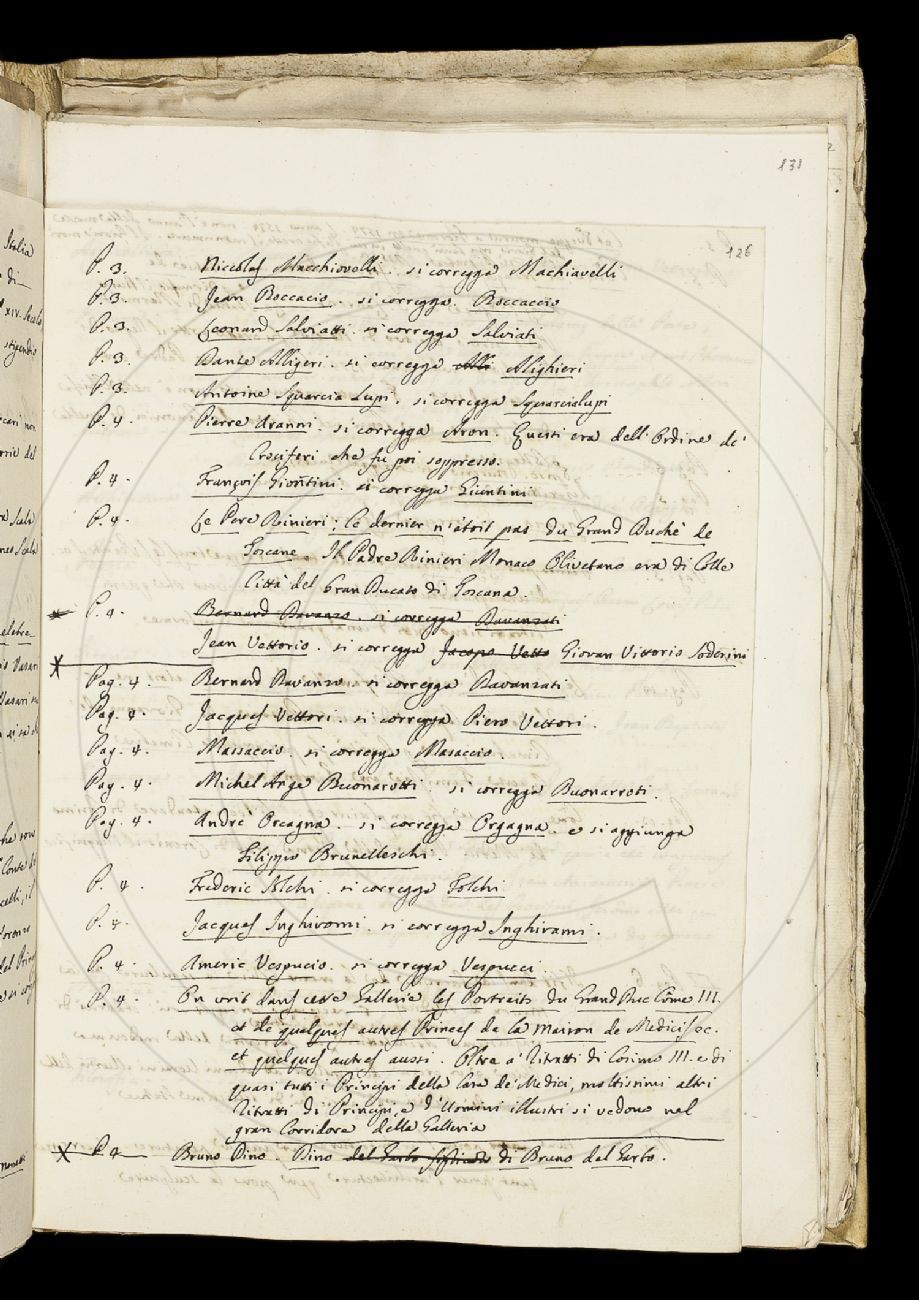 131
126
P. 3. Niccolas Macchiovelli. si corregga Machiavelli
P. 3. Jean Boccacio. si corregga. Boccaccio
P. 3. Leonard Salviatti. si corregga Salviati
P. 3. Dante Alligeri. si corregga Alli Alighieri
P. 3. Antoine Squarcia Lupi. si corregga Squarcialupi
P. 4. Pierre Aranni. si corregga Aron. Questi era dell'Ordine de'
Crociferi che fu poi soppresso.
P. 4. François Giontini. si corregga Giuntini
P. 4. Le Pere Rinieri; le dernier n'étoit pas du Grand Duché de
Toscane. Il Padre Rinieri Monaco Olivetano era di Colle
Città del Gran Ducato di Toscana.
P. 4. Bernard Davanzo. si corregga Davanzati
Jean Vettorio. si corregga Jacopo Vetto Giovan Vittorio Soderini
Pag. 4. Bernard Davanzo. si corregga Davanzati
Pag. 4. Jacques Vettori. si corregga Piero Vettori.
Pag. 4. Massaccio si corregga Masaccio.
Pag. 4. Michel Ange Buonarotti. si corregga Buonarroti.
Pag. 4. André Orcagna. si corregga Orgagna. e si aggiunga
Filippo Brunelleschi.
P. 4. Frederic Solchi. si corregga Folchi
P. 4. Jacques Inghiromi. si corregga Inghirami.
P. 4. Americ Vespucio. si corregga Vespucci.
P. 4. On voit dans cette Gallerie les Portraits du Grand Duc Côme III.
et de quelques autres Princes de la maison de Medicis ec.
et quelques autres aussi. Oltre a' Ritratti di Cosimo III. e di
quasi tutti i Principi della Casa de' Medici, moltissimi altri
Ritratti di Principi, e d'Uomini illustri si vedono nel
gran Corridore della Galleria
P. 4 Bruno Dino. Dino del Garbo di Bruno del Garbo.